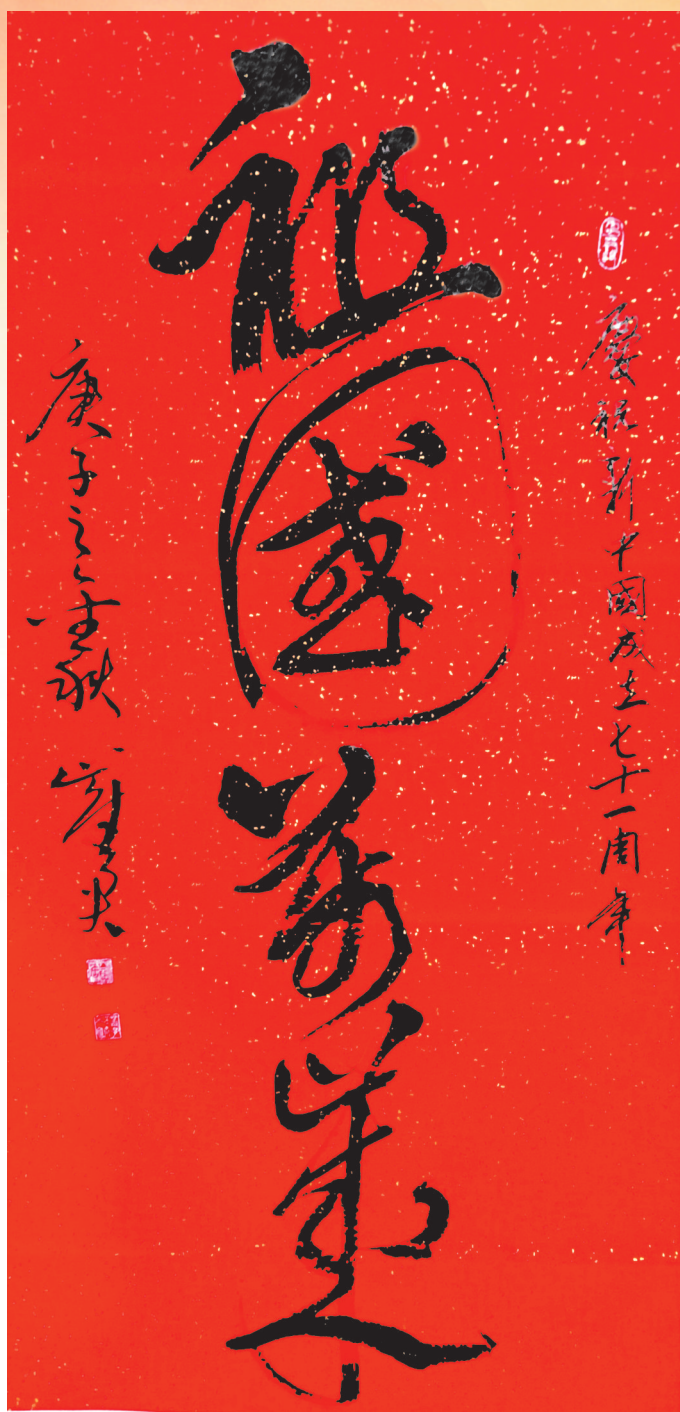 慶祝新中國成立七十一周年
祖國萬歲
庚子之金秋